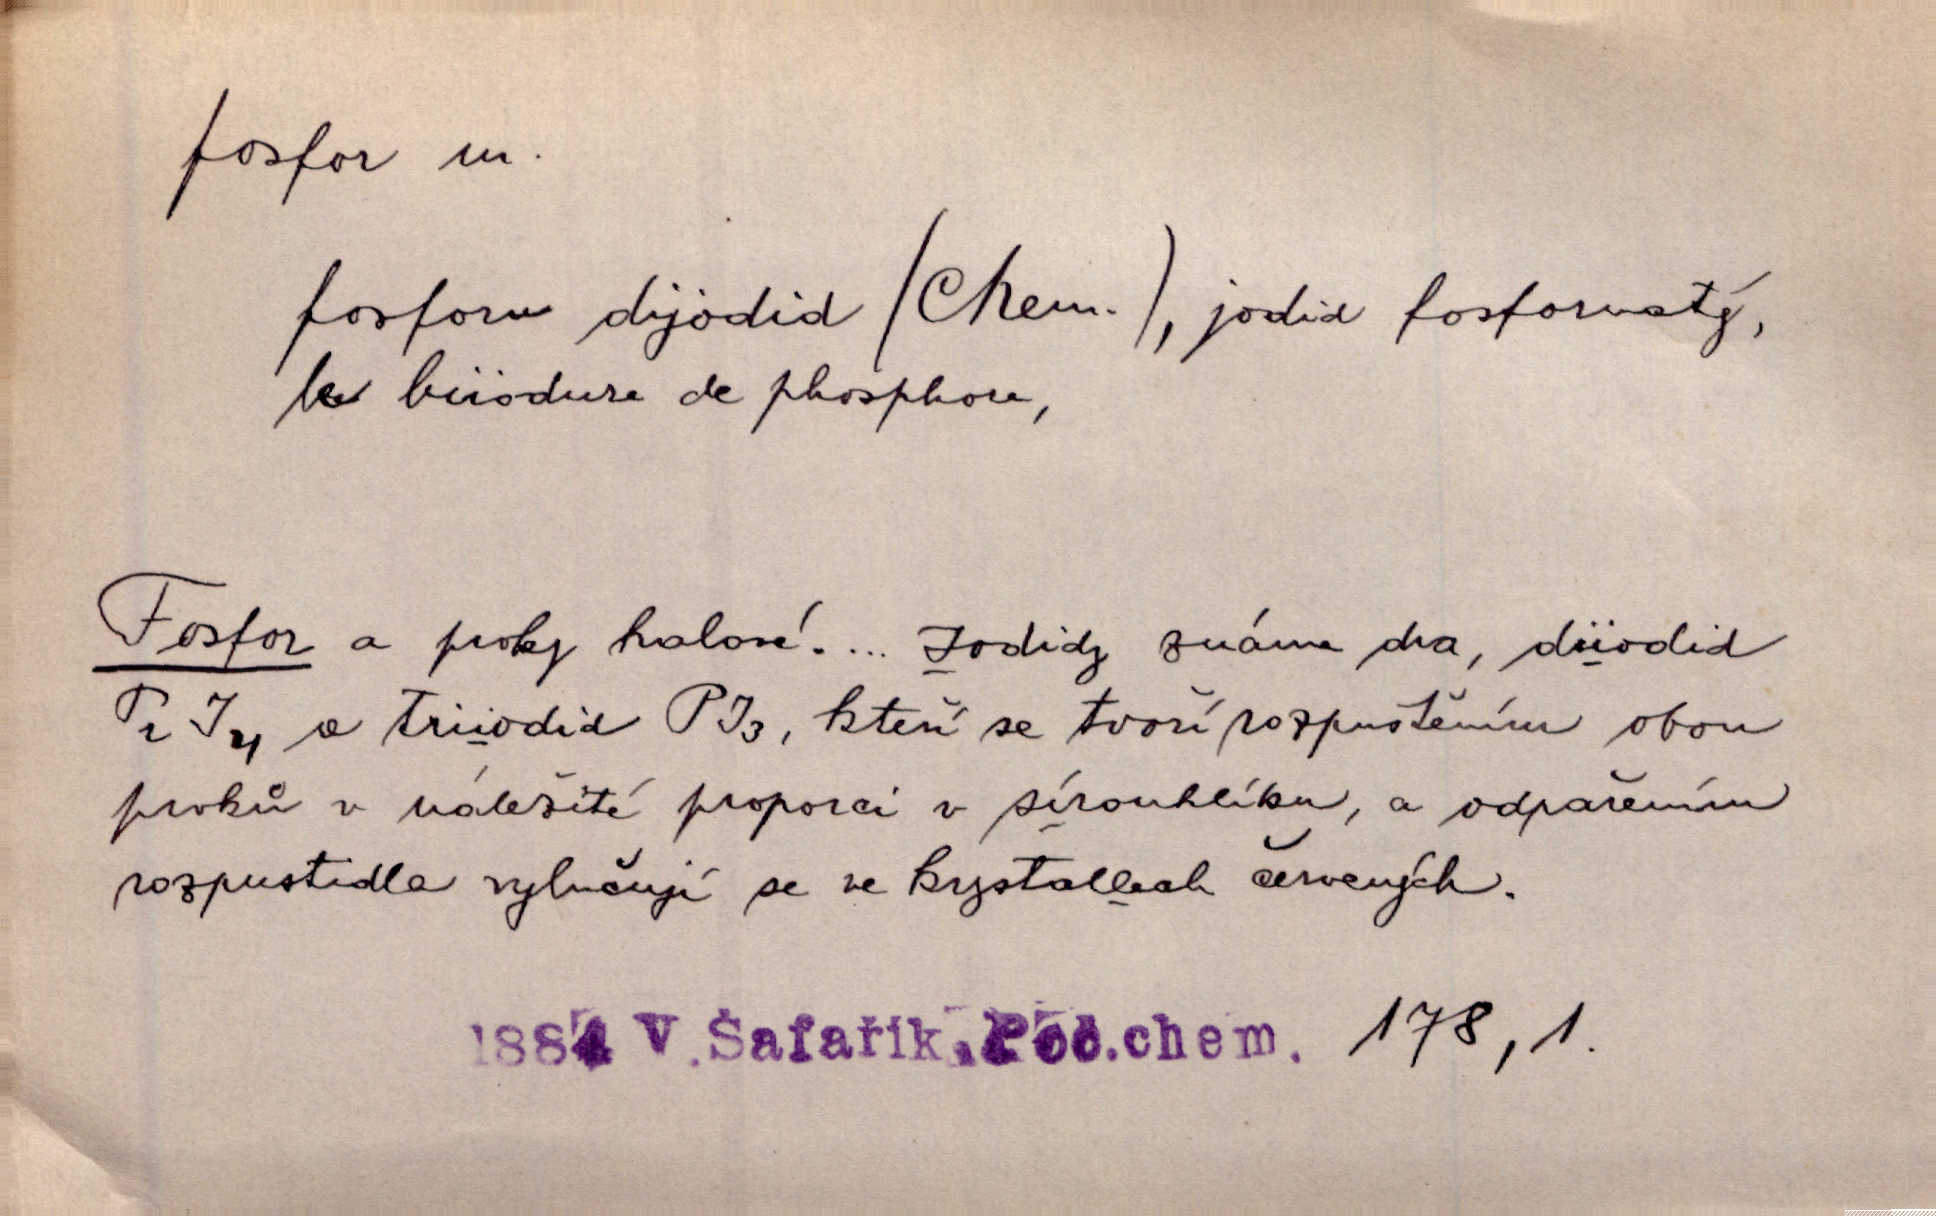 fosfor m.
fosforu dijodid (Chem.), jodid fosfornatý,
le biiodure de phosphore,
Fosfor a prvky halové. ... Iodidy známe dva, diiodid
P₂I₄ a triiodid PI₃, kteří se tvoří rozpuštěním obou
prvků v náležité proporci v sírouhlíku, a odpařením
rozpustidla vylučují se ve krystallech červených.
1884 V. Šafařík, Poč.chem. 178, 1.